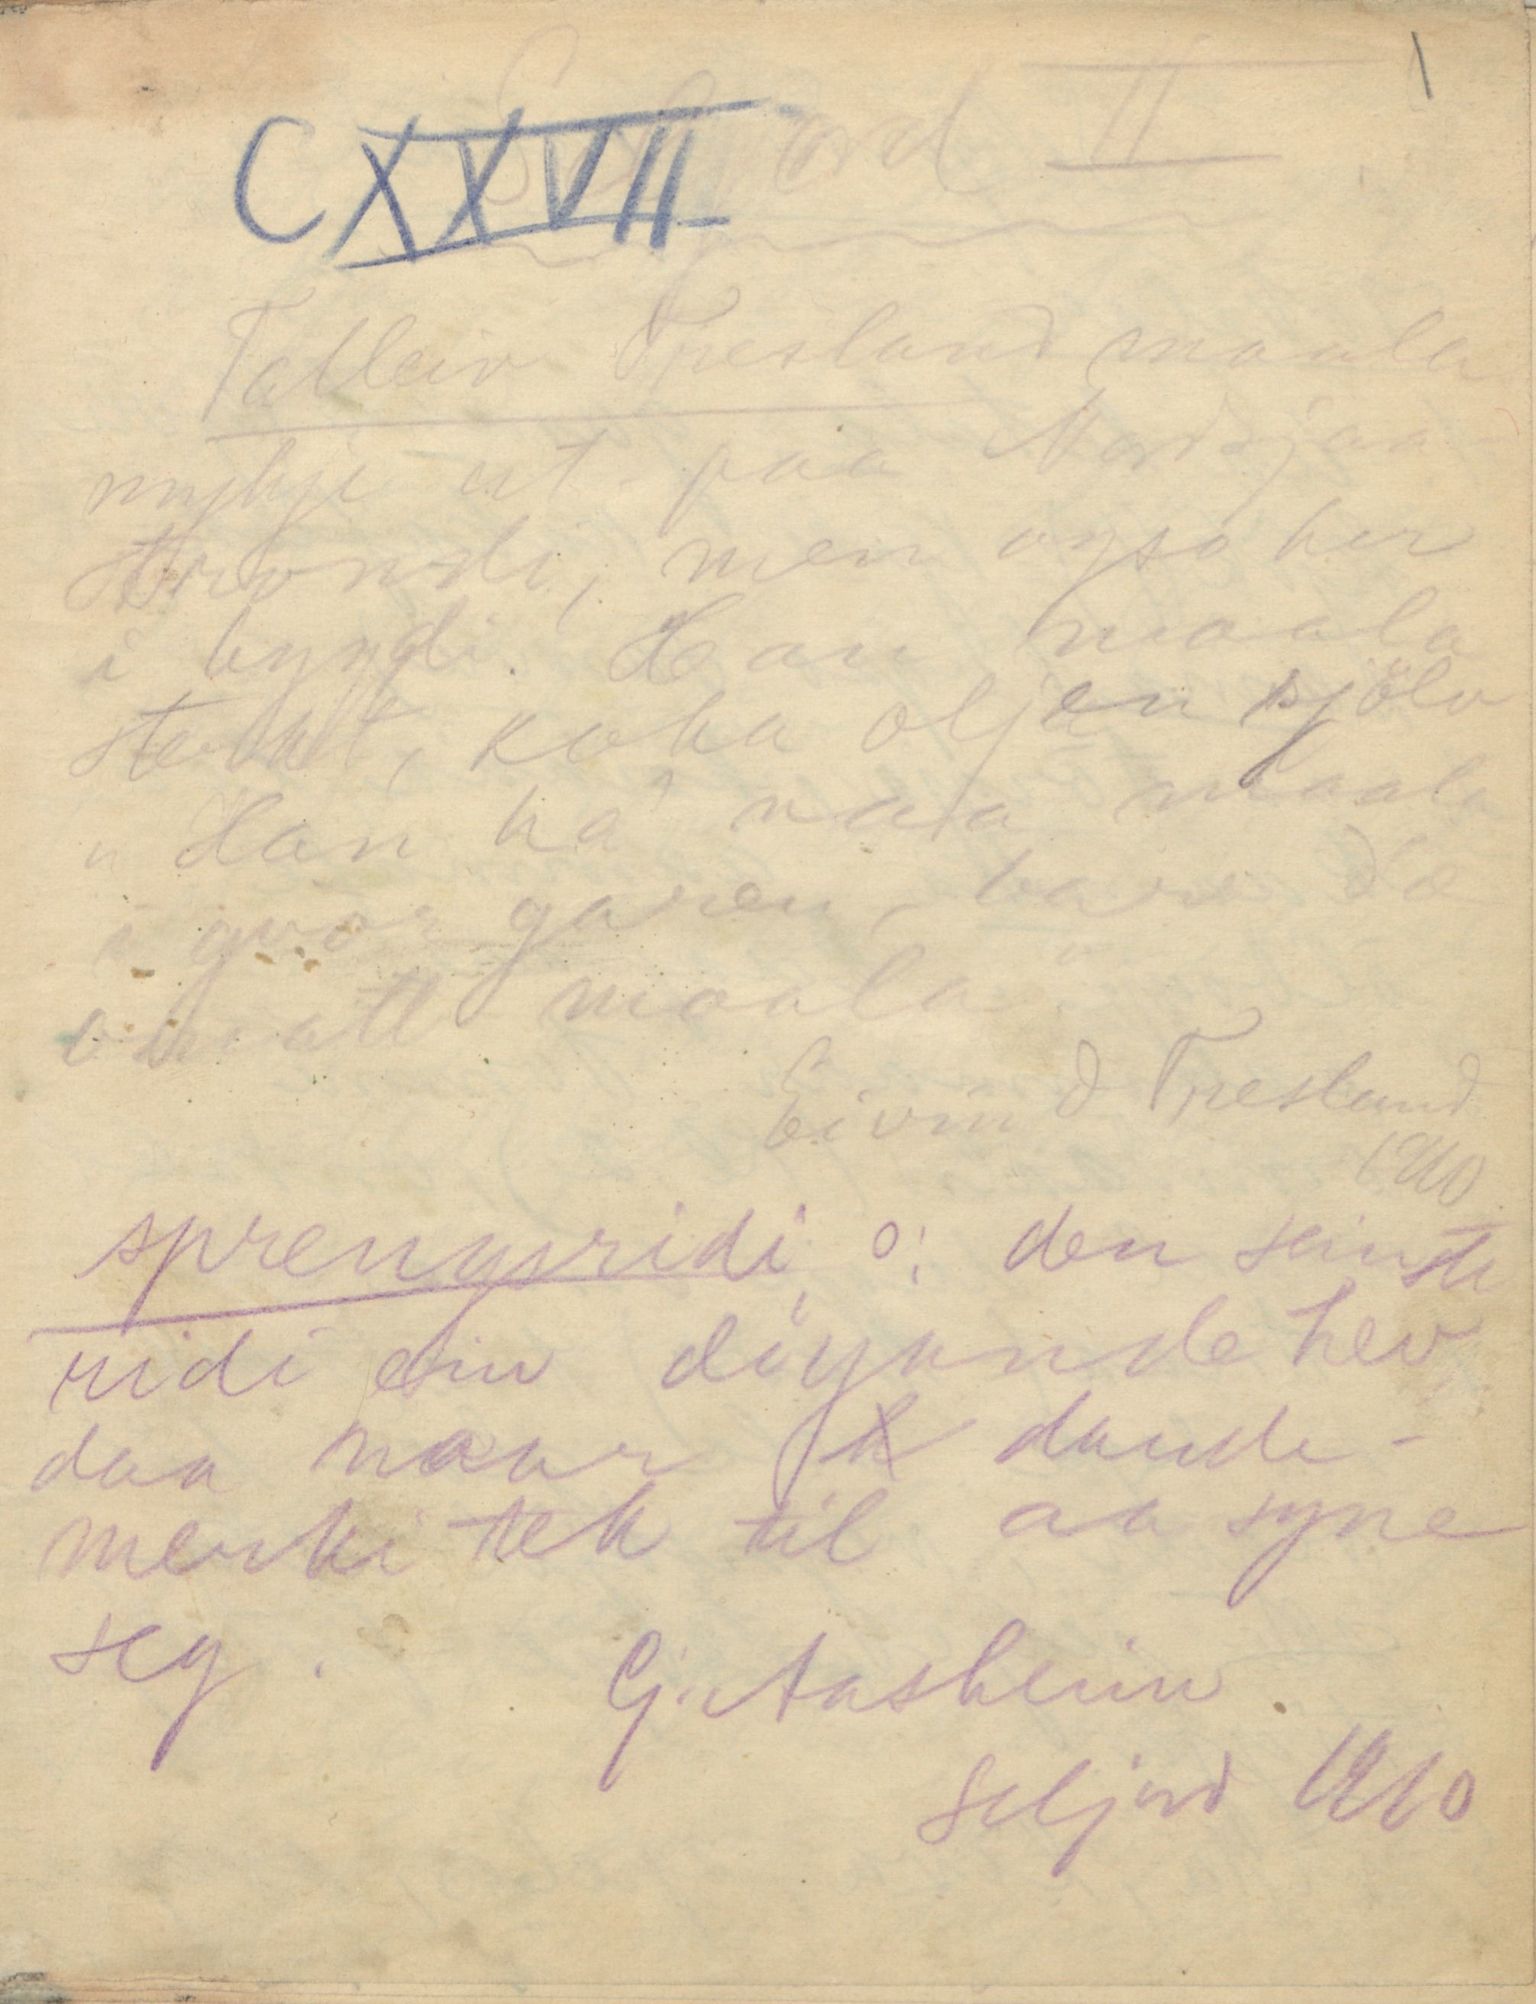 1
Seljord II
CXXVII
Talleiv Tresland maala
mykje ut paa Nordsjaa-
strondi, men ogso her
i bygdi. Han maala
sterkt, koka oljen sjölv
"Han ha' naa maala
i gvor garen, bare dæ
va maala"
Eivind Tresland
1910
sprengridi ɔ: den seinste
ridi ein döyande hev,
daa naar daude-
merki tek til aa syne
seg.
Gj. Aasheim.
Seljord 1910